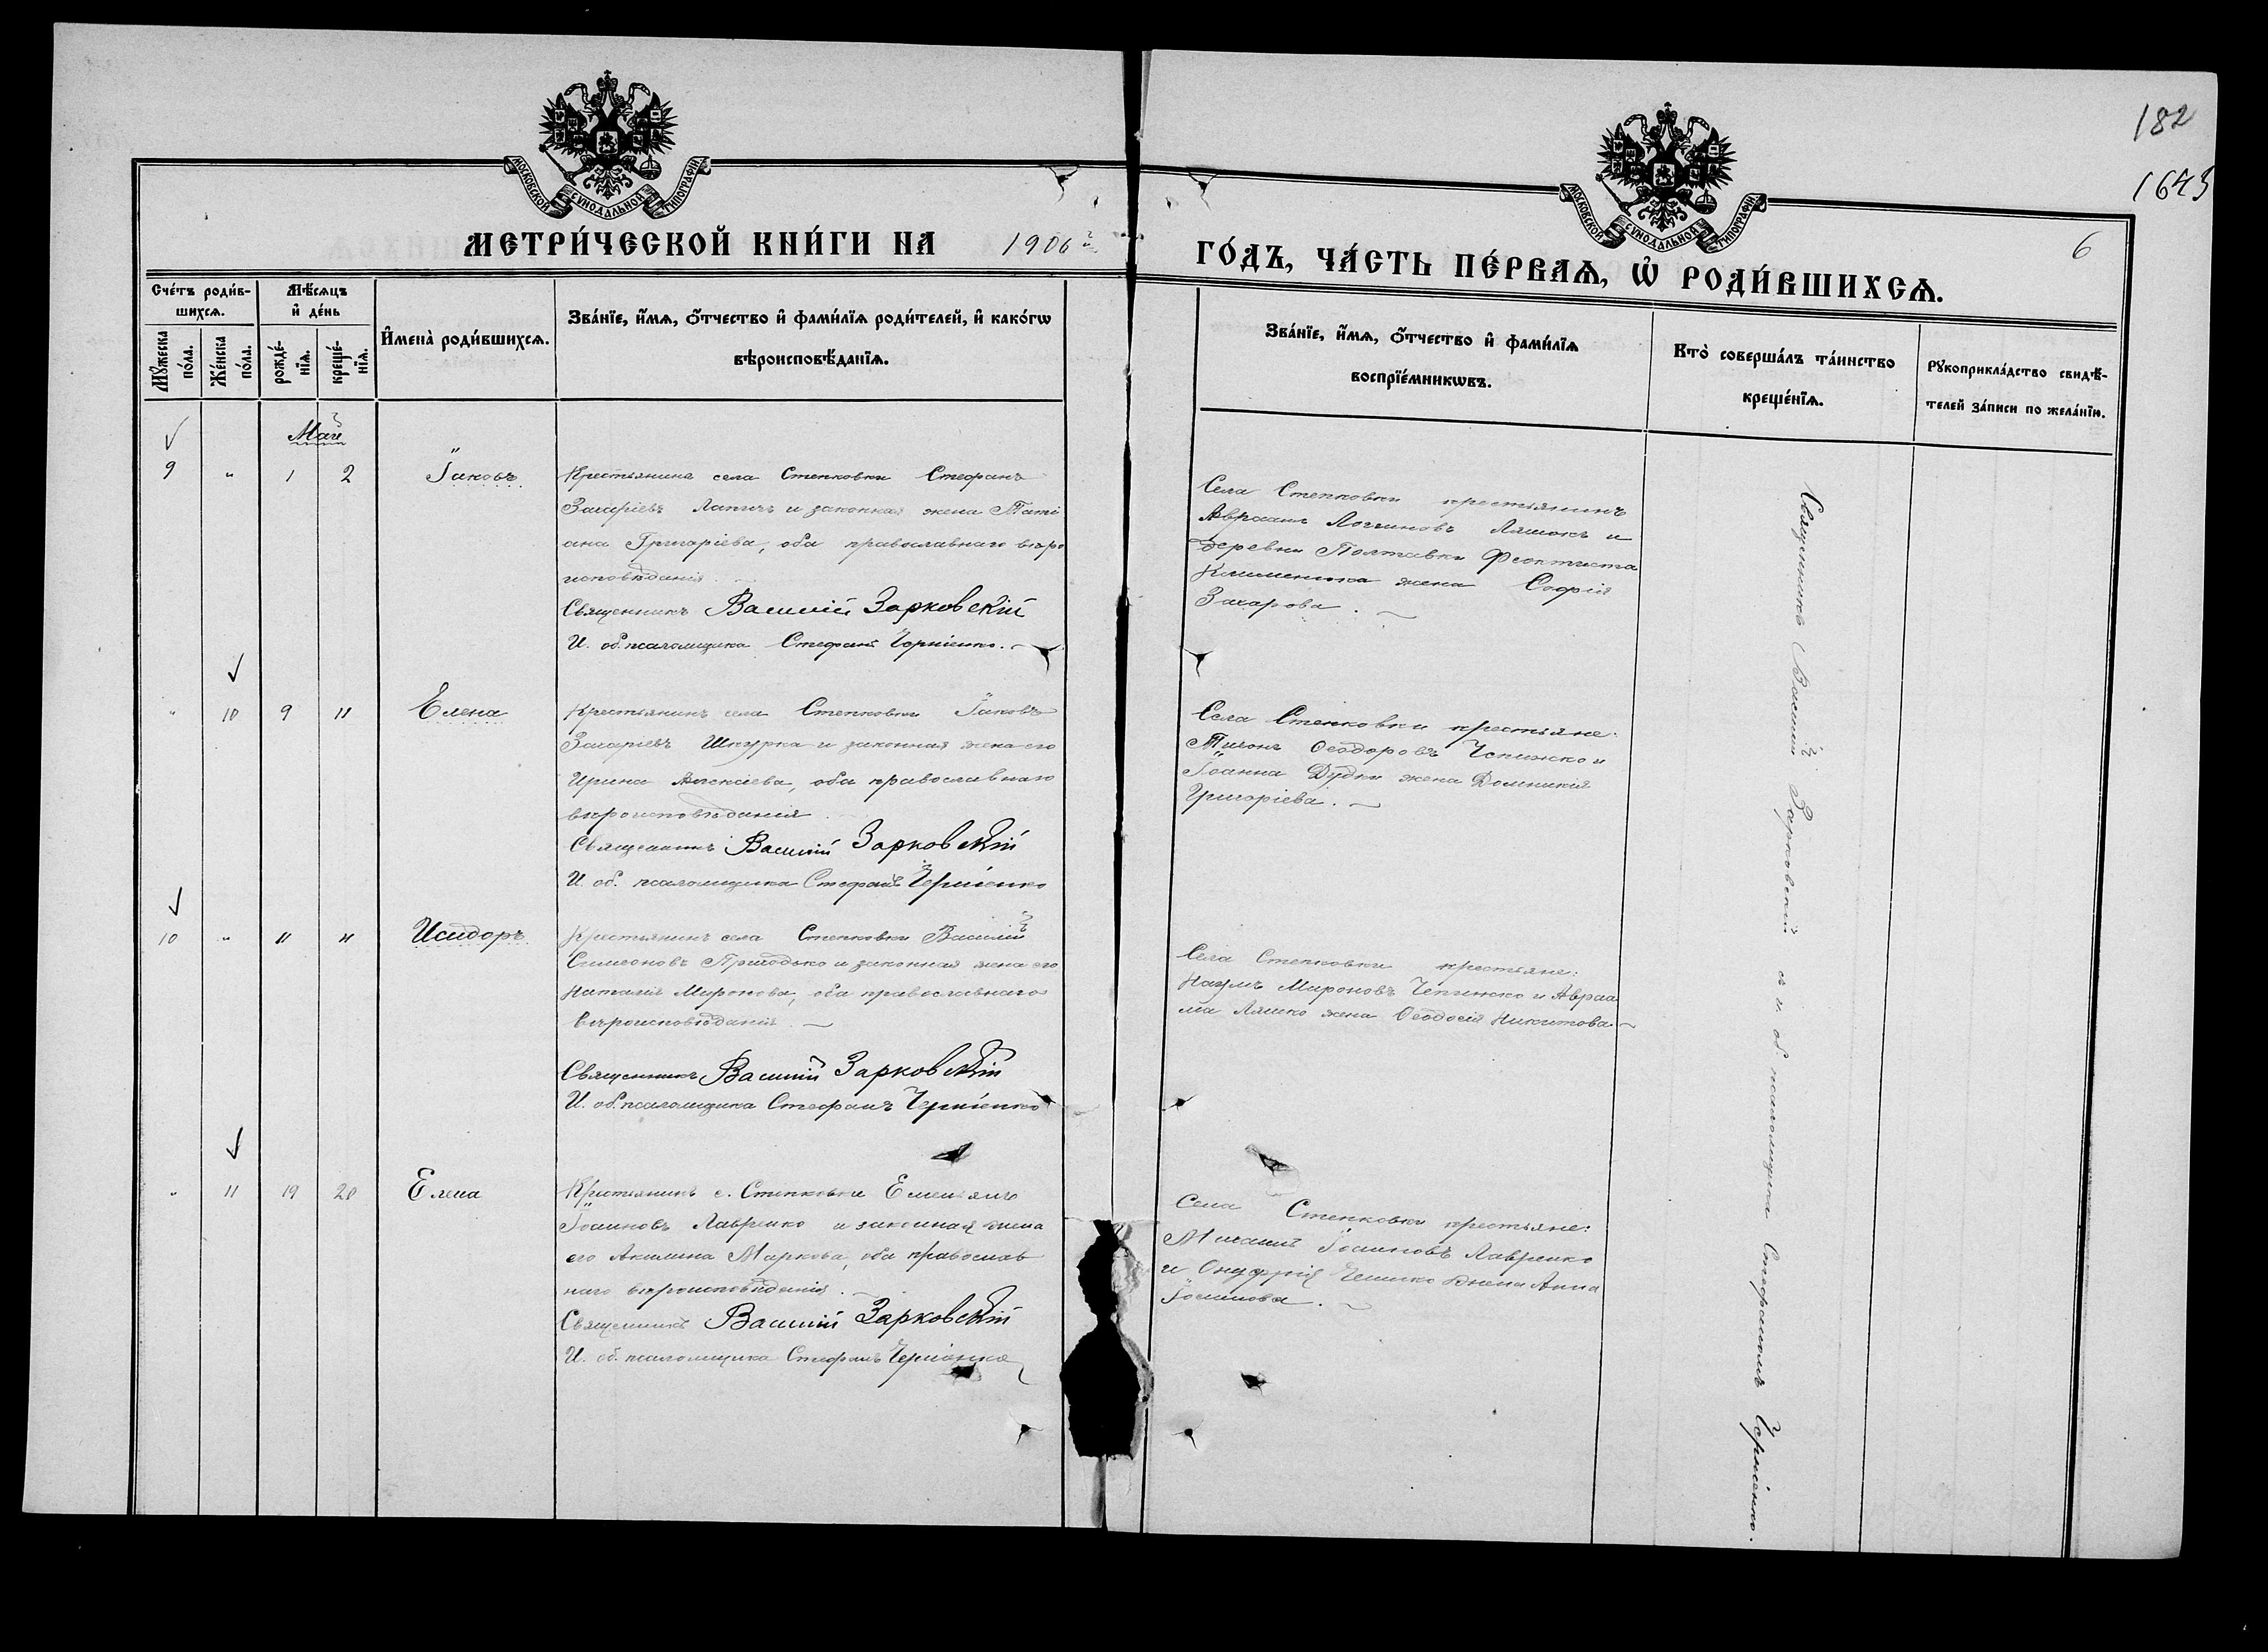 182
1643
6
МОСКОВСКОЙ СѴНОДАЛЬНОЙ ТИПОГРАФІИ
МОСКОВСКОЙ СѴНОДАЛЬНОЙ ТИПОГРАФІИ
МЕТРИ́ЧЕСКОЙ КНИ́ГИ НА 1906 г.
ГО́ДЪ, ЧА́СТЬ ПЕ́РВАѦ, Ѡ҆ РОДИ́ВШИХСѦ.
Сче́тъ роди́в-
шихсѧ.
Мꙋ́жеска по́ла.
Же́нска по́ла.
Мѣ́сѧцъ
и҆ де́нь
рожде́-
нїѧ.
креще́-
нїѧ.
И҆мена̀ роди́вшихсѧ.
Зва́нїе, и҆́мѧ, ѻ҆́тчество и҆ фами́лїѧ роди́телей, и҆ како́гѡ
вѣроисповѣ́данїѧ.
Зва́нїе, и҆́мѧ, ѻ҆́тчество и҆ фами́лїѧ
воспрїе́мникѡвъ.
Кто̀ соверша́лъ та́инство
креще́нїѧ.
Рꙋкоприкла́дство свидѣ́-
телей за́писи по жела́нїю.
Май
9 " 1 2 Іаковъ
Крестьянинъ села Степковки Стефанъ
Захаріевъ Лапичъ и законная жена Тати
ана Григоріева, оба православнаго вѣро
исповѣданія.
Священникъ Василій Зарковскій
И. об. псаломщика Стефанъ Черніенко.
Села Степковки крестьянинъ
Авраамъ Логгиновъ Ляшокъ и
деревни Полтавки Феоктиста
Клименика жена Софія
Захарова.
" 10 9 11 Елена
Крестьянинъ села Степковки Іаковъ
Захаріевъ Шкурка и законная жена его
Ирина Алексіева, оба православнаго
вѣроисповѣданія.
Священникъ Василій Зарковскій
И. об. псаломщика Стефанъ Черніенко
Села Степковки крестьяне:
Тихонъ Ѳеодоровъ Чепижко и
Іоанна Дудки жена Домникія
Григоріева.
10 " 11 11 Исидоръ
Крестьянинъ села Степковки Василій
Симеоновъ Приходько и законная жена его
Наталія Миронова, оба православнаго
вѣроисповѣданія.
Священникъ Василій Зарковскій
И. об. псаломщика Стефанъ Черніенко
Села Степковки крестьяне:
Наумъ Мироновъ Чепижко и Авраа
ма Ляшко жена Ѳеодосія Никитова.
" 11 19 20 Елена
Крестьянинъ с. Степковки Емельянъ
Іоанновъ Лавренко и законная жена
его Акилина Маркова, оба православ
наго вѣроисповѣданія.
Священникъ Василій Зарковскій
И. об. псаломщика Стефанъ Черніенко
Села Степковки крестьяне:
Михаилъ Іоанновъ Лавренко
и Онуфрія жена Анна
Іоаннова.
Священникъ Василій Зарковскій съ и. об. псаломщика Стефаномъ Черніенко.